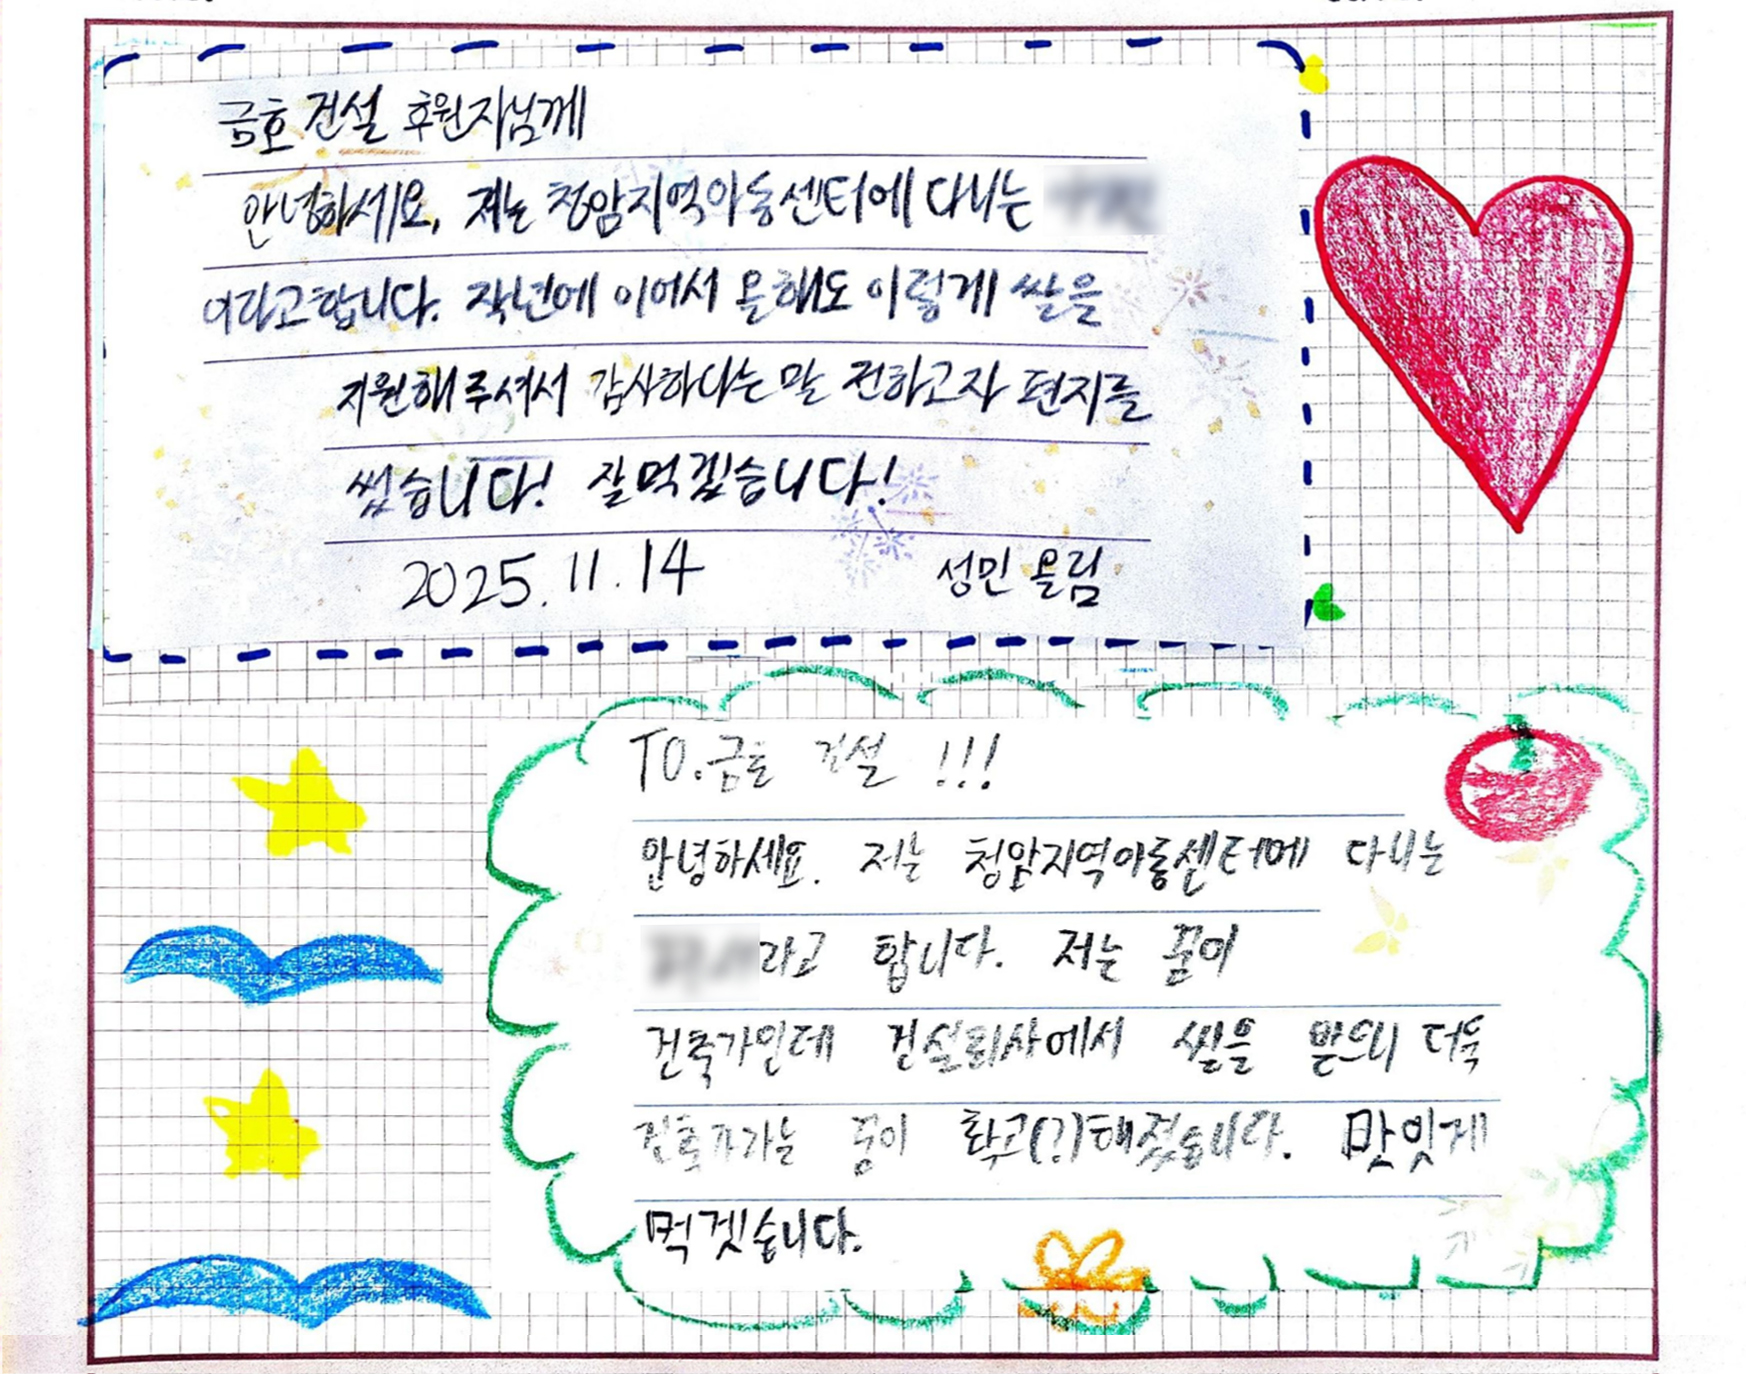 금호건설 후원자님께
안녕하세요, 저는 청암지역아동센터에 다니는
이라고합니다. 작년에 이어서 올해도 이렇게 쌀을
지원해주셔서 감사하다는 말 전하고자 편지를
썼습니다! 잘먹겠습니다!
2025.11.14 성민 올림
TO.금호 건설 !!!
안녕하세요. 저는 청암지역아동센터에 다니는
라고 합니다. 저는 꿈이
건축가인데 건설회사에서 쌀을 받으니 더욱
건축가가는 꿈이 확고(?)해졌습니다. 맛잇게
먹겟습니다.